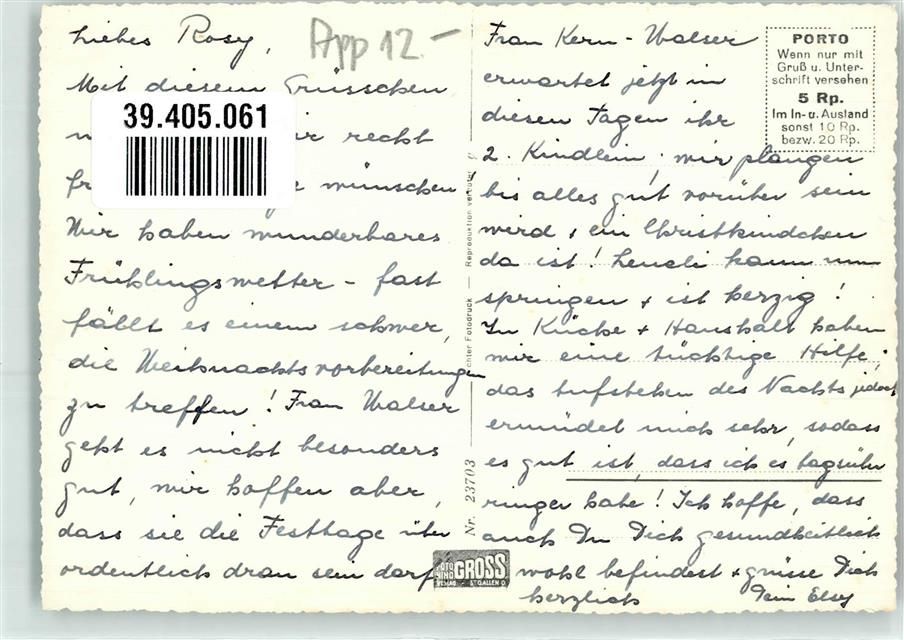 Liebes Rosy,
App 12.-
Mit diesem Grüsschen
39.405.061
recht
wünschen
Wir haben wunderbares
Frühlingswetter - fast
fällt es einem schwer,
die Weihnachtsvorbereitungen
zu treffen! Frau Walser
geht es nicht besonders
gut, wir hoffen aber,
dass sie die Festtage über
ordentlich dran sein darf
Reproduktion
chter Fotodruck
Nr. 23703
FOTO
GROSS
ST. GALLEN O
PORTO
Wenn nur mit
Gruß u. Unter-
schrift versehen
5 Rp.
Im In- u. Ausland
sonst 10 Rp.
bezw. 20 Rp.
Frau Kern - Walser
erwartet jetzt in
diesen Tagen ihr
2. Kindlein; wir plangen
bis alles gut vorüber sein
wird, ein Christkindchen
da ist! Heueli kann nun
springen + ist herzig!
In Küche + Haushalt haben
wir eine tüchtige Hilfe,
das Aufstehen des Nachts jedoch
ermüdet mich sehr, sodass
es gut ist, dass ich es tagsüber
ringer habe! Ich hoffe, dass
auch Du Dich gesundheitlich
wohl befindest + grüsse Dich
herzlich Dein Elsy